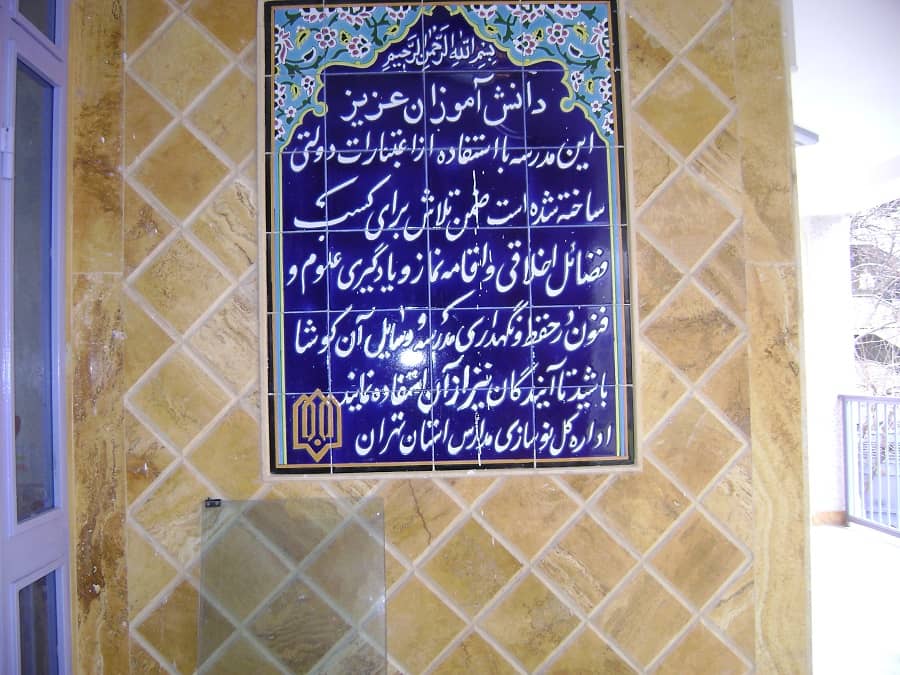 بسم الله الرحمن الرحیم
دانش آموزان عزیز
این مدرسه با استفاده از اعتبارات دولتی
ساخته شده است ضمن تلاش برای کسب
فضائل اخلاقی و اقامه نماز و یادگیری علوم و
فنون در حفظ و نگهداری مدرسه و وسایل آن کوشا
باشید تا آیندگان نیز از آن استفاده نمایند
اداره کل نوسازی مدارس استان تهران